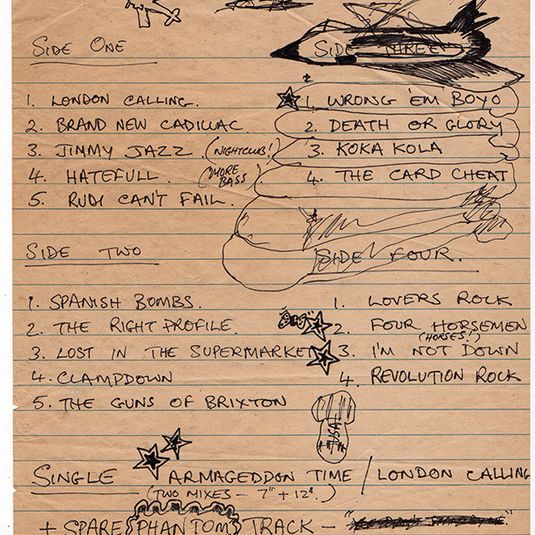 SIDE ONE
1. LONDON CALLING.
2. BRAND NEW CADILLAC.
3. JIMMY JAZZ. (NIGHTCLUB!)
4. HATEFULL. (MORE BASS)
5. RUDI CAN'T FAIL.
SIDE TWO
1. SPANISH BOMBS.
2. THE RIGHT PROFILE.
3. LOST IN THE SUPERMARKET
4. CLAMPDOWN
5. THE GUNS OF BRIXTON
SIDE THREE
1. WRONG 'EM BOYO
2. DEATH OR GLORY
3. KOKA KOLA
4. THE CARD CHEAT
SIDE FOUR.
1. LOVERS ROCK
2. FOUR HORSEMEN
(HORSES!)
3. I'M NOT DOWN
4. REVOLUTION ROCK
USA
SINGLE ARMAGEDDON TIME / LONDON CALLING
(TWO MIXES - 7" + 12".)
+ SPARE PHANTOM TRACK - "